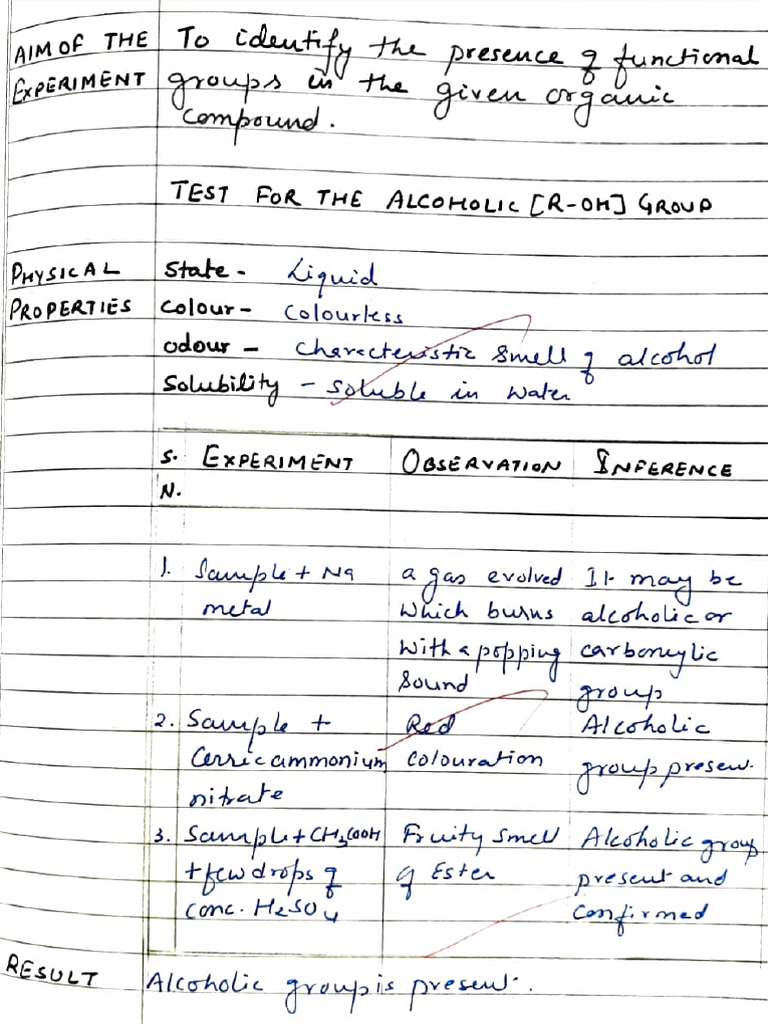 AIM OF THE EXPERIMENT
To identify the presence of functional
groups in the given organic
compound.
TEST FOR THE ALCOHOLIC [R-OH] GROUP
PHYSICAL PROPERTIES
State - Liquid
Colour - Colourless
Odour - Characteristic smell of alcohol
Solubility - Soluble in water
S.N. EXPERIMENT OBSERVATION INFERENCE
1. Sample + Na a gas evolved It may be
metal which burns alcoholic or
with a popping carboxylic
sound group
2. Sample + Red Alcoholic
Cerric ammonium colouration group present.
nitrate
3. Sample + CH3COOH Fruity smell Alcoholic group
+ few drops of of Ester present and
conc. H2SO4 confirmed
RESULT Alcoholic group is present.